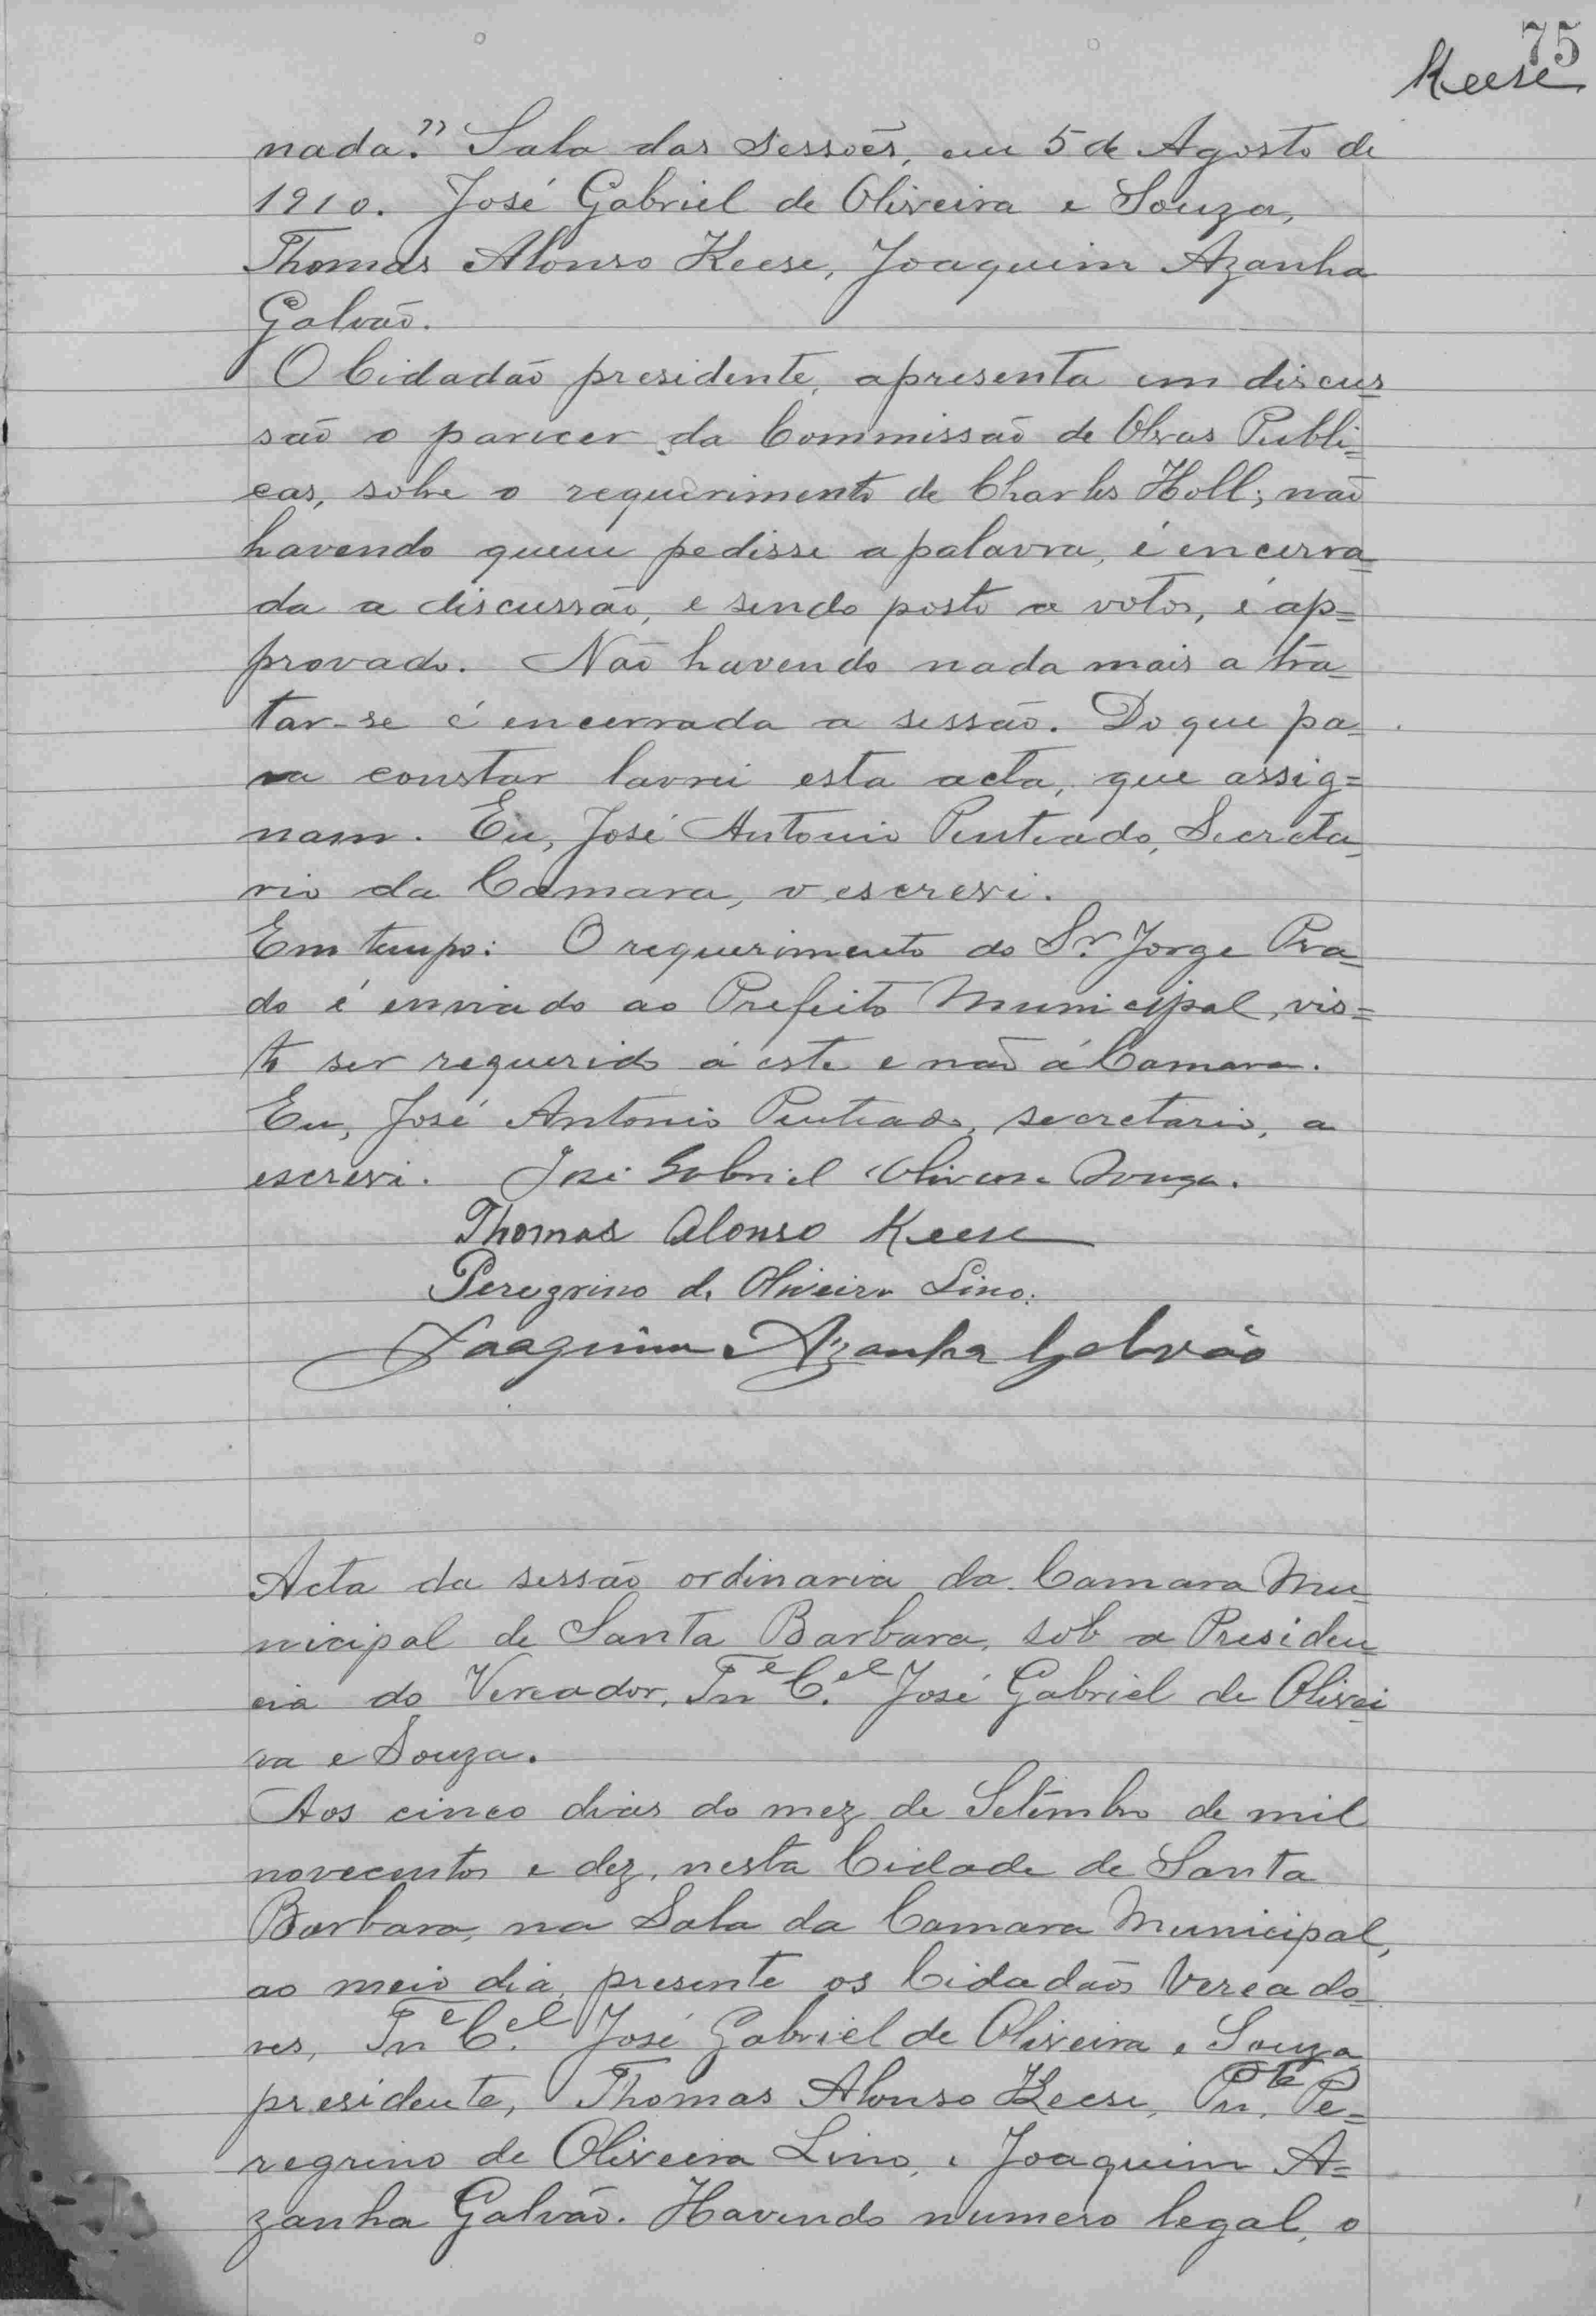 75
Keese
nada." Sala das Sessões, em 5 de Agosto de
1910. José Gabriel de Oliveira e Souza,
Thomas Alonso Keese, Joaquim Azanha
Galvão.
O Cidadão presidente, apresenta em discus-
são o parecer da Commissão de Obras Publi-
cas, sobre o requerimento de Charles Holl; não
havendo quem pedisse a palavra, é encerra-
da a discussão, e sendo posto a votos, é ap=
provado. Não havendo nada mais a tra-
tar-se é encerrada a sessão. Do que pa-
ra constar lavrei esta acta, que assig=
nam. Eu, José Antonio Penteado, Secreta-
rio da Camara, o escrevi.
Em tempo: O requerimento do Sr. Jorge Pra-
do é enviado ao Prefeito Municipal, vis=
to ser requerido á este e não á Camara.
Eu, José Antonio Penteado, secretario, a
escrevi. José Gabriel Oliveira e Souza.
Thomas Alonso Keese
Peregrino de Oliveira Lino.
Joaquim Azanha Galvão
Acta da sessão ordinaria da Camara Mu-
nicipal de Santa Barbara, sob a Presiden-
cia do Vereador, Tne Cel. José Gabriel de Olivei
ra e Souza.
Aos cinco dias do mez de Setembro de mil
novecentos e dez, nesta Cidade de Santa
Barbara, na Sala da Camara Municipal,
ao meio dia, presente os Cidadãos Vereado-
res, Tne Cel. José Gabriel de Oliveira e Souza
presidente, Thomas Alonso Keese, Pe-
regrino de Oliveira Lino, e Joaquim A=
zanha Galvão. Havendo numero legal, o